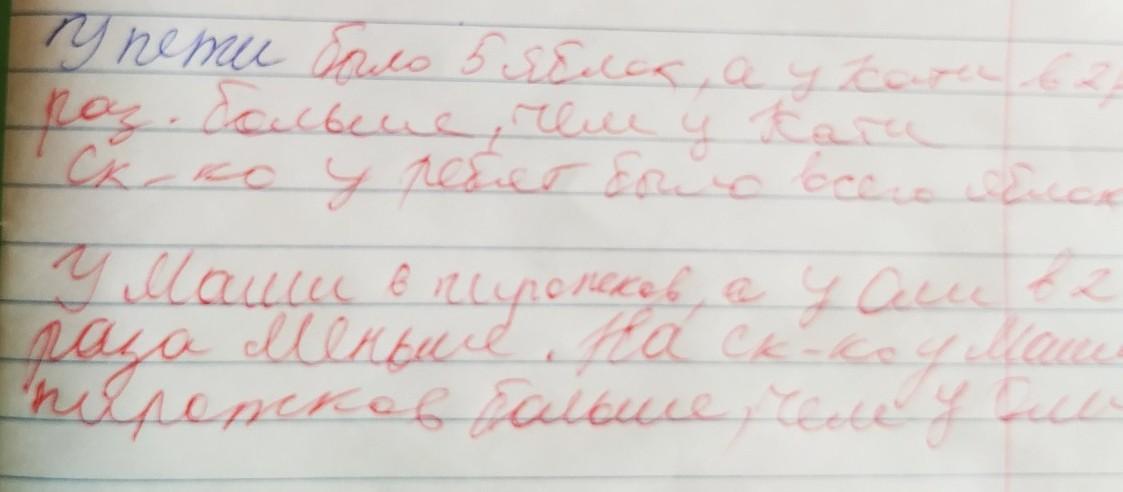 У пети было 5 яблок, а у кати в 2
раз. больше, чем у Кати
Ск-ко у ребят было всего яблок
У Маши 6 пирожков, а у Оли в 2
раза меньше. На ск-ко у Маши
пирожков больше, чем у Оли